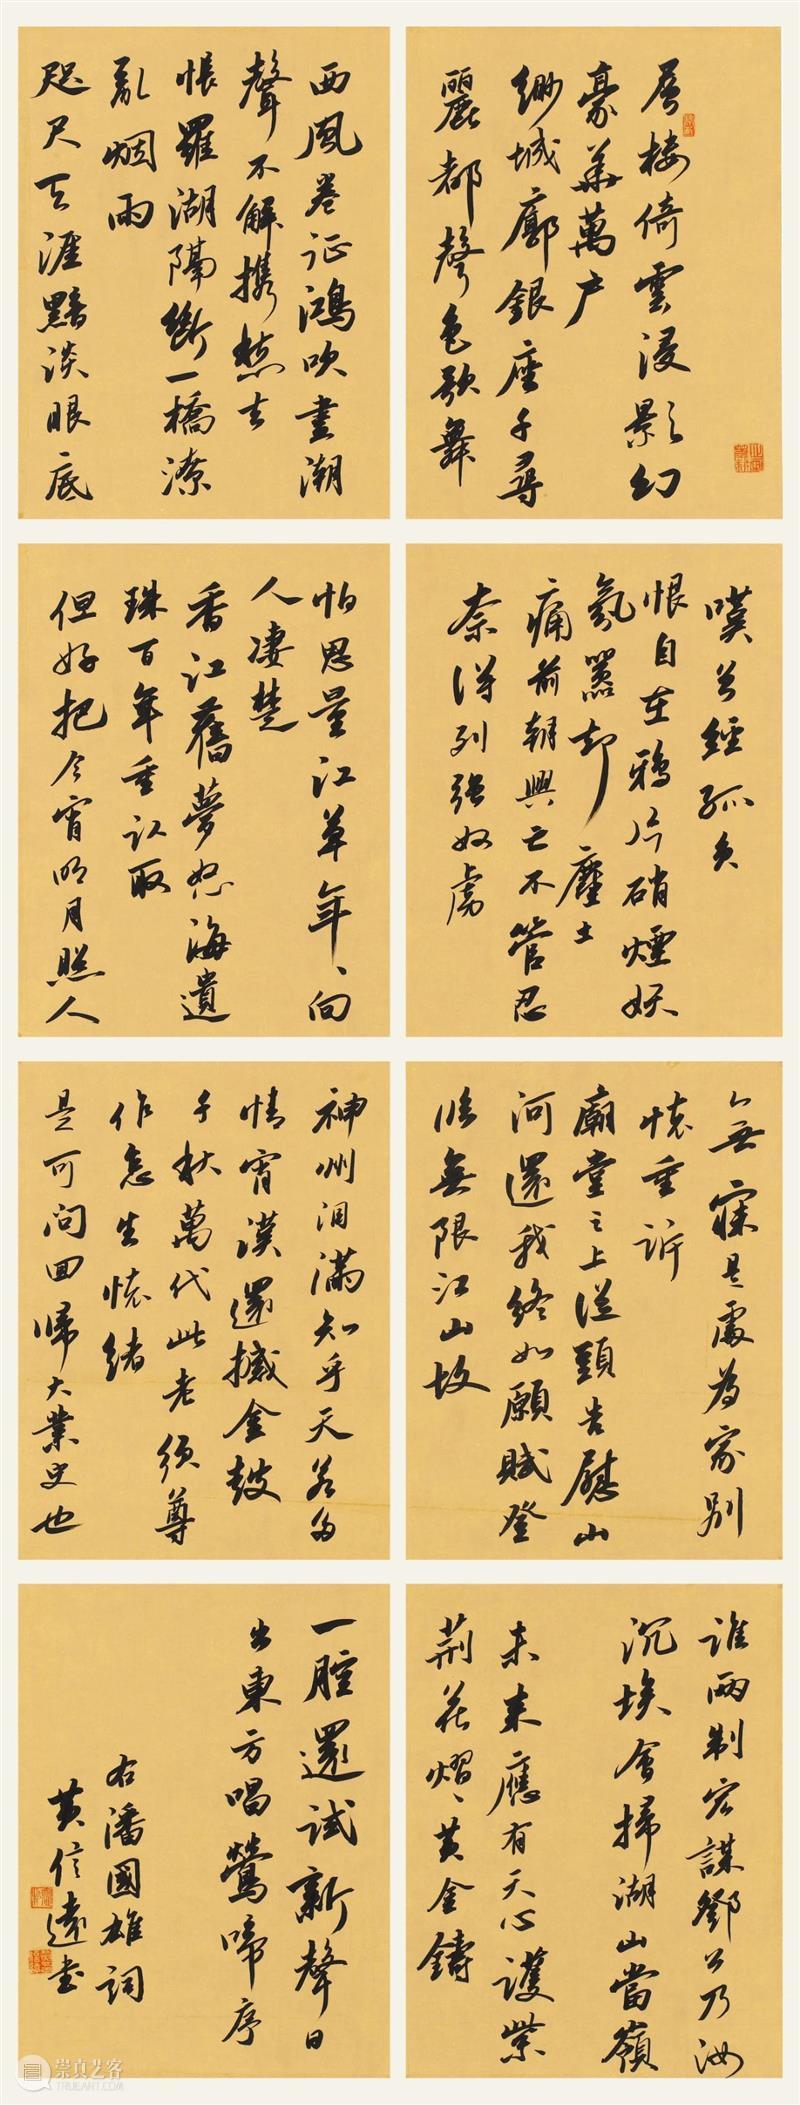 層楼倚雲浸影幻
豪華萬户
緲城廓銀座千尋
麗都聲色歌舞
西風卷征鴻吹畫潮
聲不解攜愁去
悵羅湖隔斷一橋潦
亂烟雨
咫尺天涯黯淡眼底
嘆曾經孤負
恨自在鴉片硝煙妖
氛囂却塵土
痛前朝興亡不管忍
奈淂列強奴虜
怕思量江草年、向
人凄楚
香江舊夢怒海遺
珠百年重認取
但好把今宵明月照人
無寐是處為家别
懷重訴
廟堂之上從頭告慰山
河還我終如願賦登
臨無限江山故
神州泪滿知乎天若多
情霄漢還撼金鼓
千秋萬代此老須尊
作怎生懷緒
是可問回歸大業史也
誰兩制宏謀鄧公乃汝
沉埃會掃湖山當嶺
未来應有天心護紫
荆花熠、黄金鑄
一腔還試新聲日
出東方唱鶯啼序
右潘國雄詞
黄信遠書
崇真艺客
TRUEART.COM